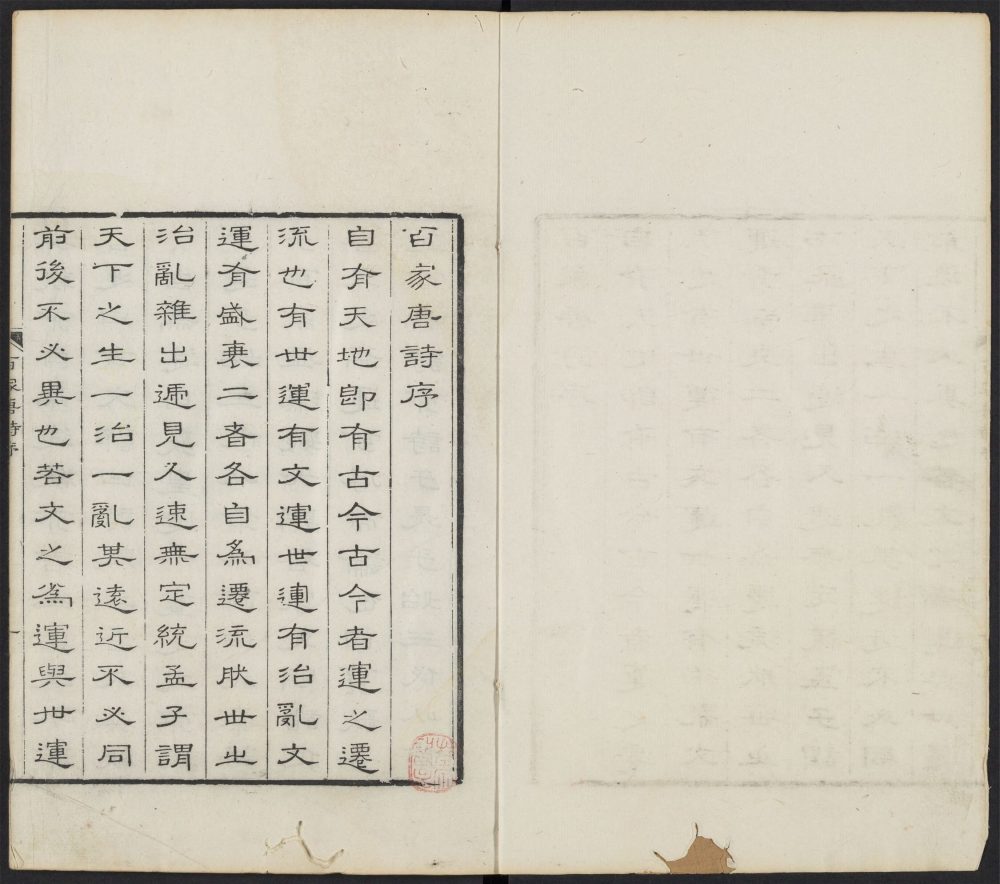 百家唐詩序
自有天地卽有古今古今者運之遷
流也有世運有文運世運有治亂文
運有盛衰二者各自為遷流然世之
治亂雜出遞見久速無定統孟子謂
天下之生一治一亂其遠近不必同
前後不必異也若文之為運與世運
百家唐詩序
一